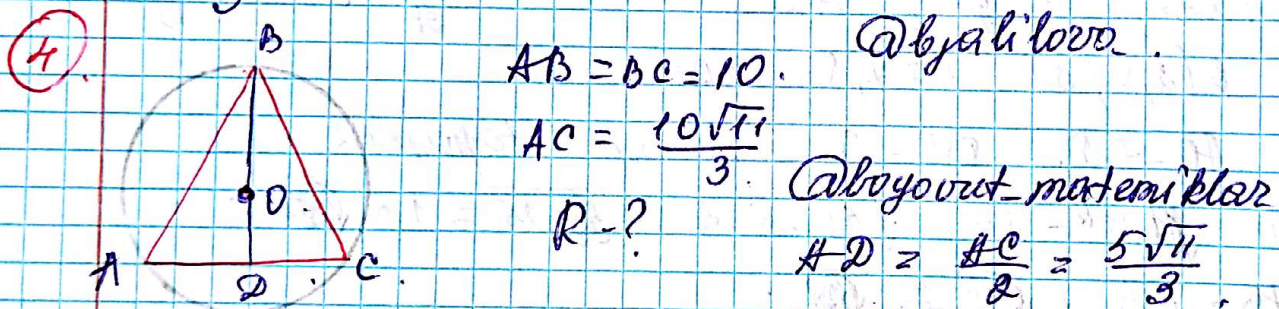 4.
B
O
A
D
C
AB = BC = 10.
AC = 10√11/3.
R - ?
@bjalilova.
@boyovut_matemiklar
AD = AC/2 = 5√11/3.